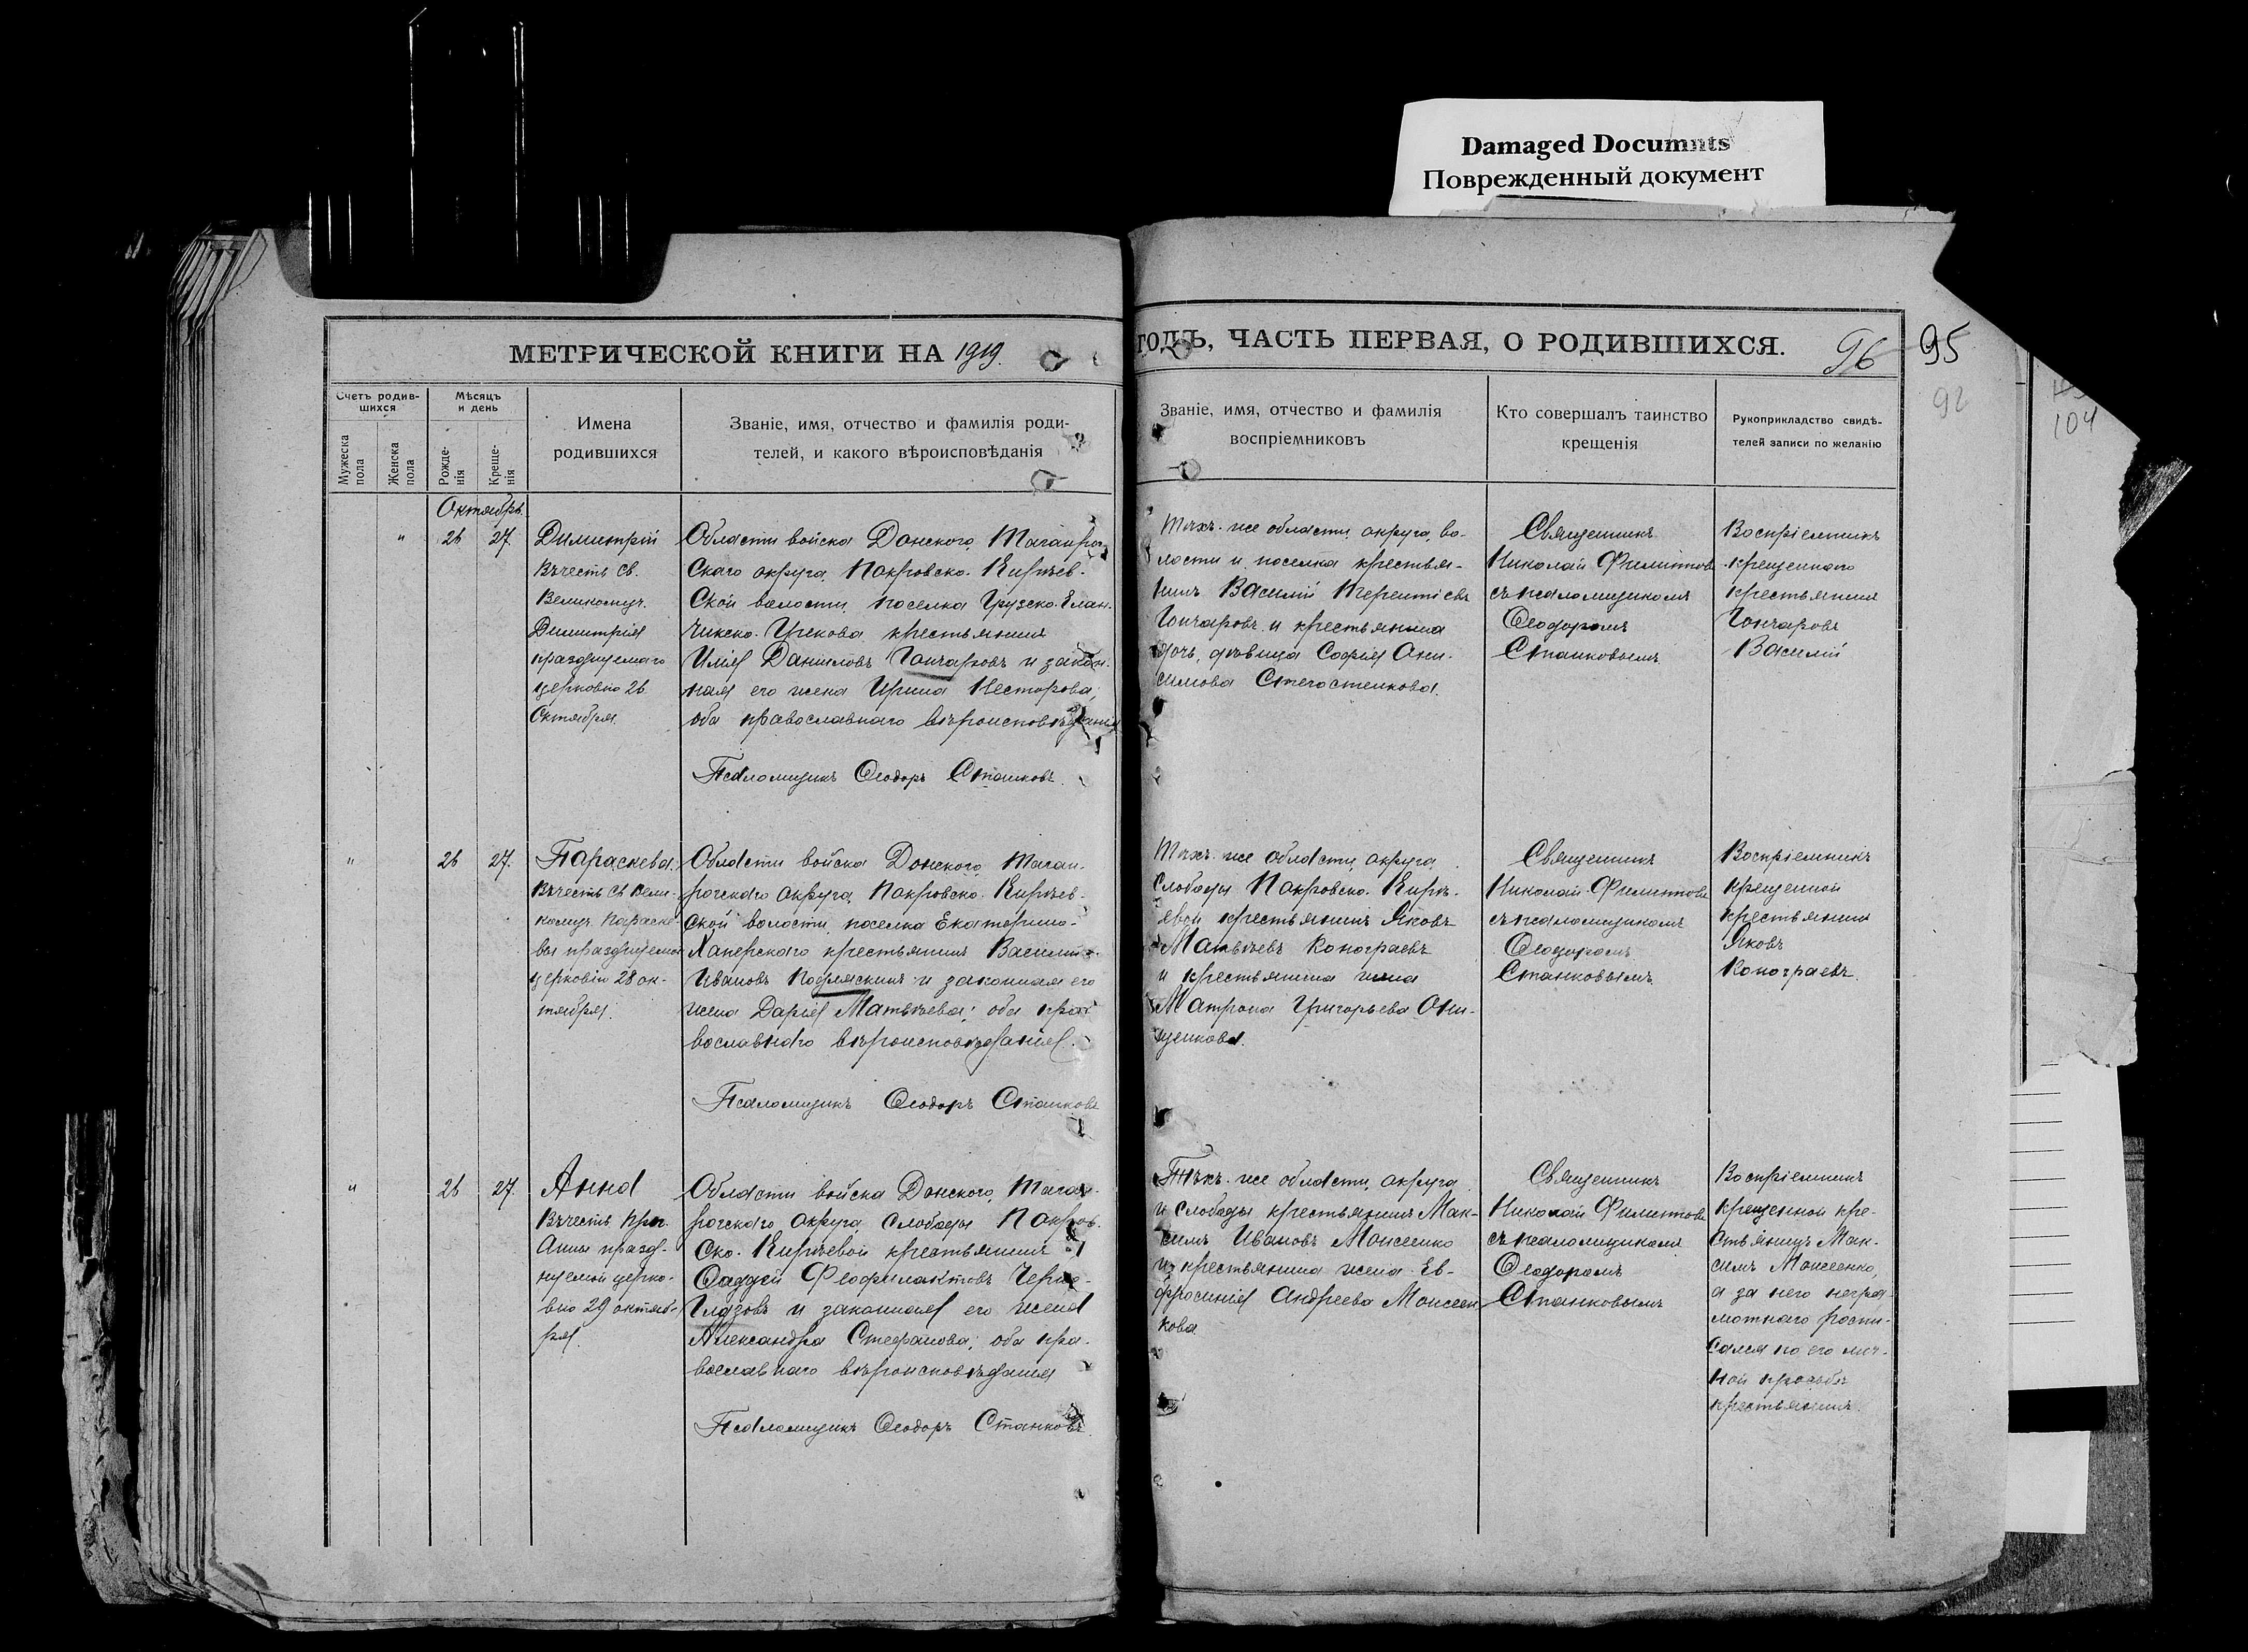 Damaged Documents
Поврежденный документ
МЕТРИЧЕСКОЙ КНИГИ НА 1919
ГОДЪ, ЧАСТЬ ПЕРВАЯ, О РОДИВШИХСЯ.
96
95
92
104
Счетъ родив-
шихся
Мужеска
пола
Женска
пола
Мѣсяцъ
и день
Рожде-
нія
Креще-
нія
Имена
родившихся
Званіе, имя, отчество и фамилія роди-
телей, и какого вѣроисповѣданія
Званіе, имя, отчество и фамилія
воспріемниковъ
Кто совершалъ таинство
крещенія
Рукоприкладство свидѣ-
телей записи по желанію
Октябрь
" 26 27.
Димитрій
Въ честь св.
Великомуч.
Димитрія
празднуемаго
церковію 26
Октября.
Области войска Донского, Таганрог-
скаго округа, Покровско-Кирѣев-
ской волости, поселка Грузско-Елан-
чикско-Урекова крестьянинъ
Илія Даниловъ Гончаровъ и закон-
ная его жена Ирина Несторова;
оба православнаго вѣроисповѣданія
Псаломщикъ Ѳеодоръ Станковъ.
Тѣхъ-же области, округа, во-
лости и поселка крестья-
нинъ Василій Терентіевъ
Гончаровъ и крестьянина
дочь, дѣвица Софія Они-
симова Стегостенкова.
Священникъ
Николай Филитовъ
съ псаломщикомъ
Ѳеодоромъ
Станковымъ
Воспріемникъ
крещеннаго
крестьянинъ
Гончаровъ
Василій
" 26 27.
Параскева.
Въ честь св. Вели-
комуч. Параске-
вы празднуемой
церковію 28 ок-
тября.
Области войска Донского, Таган-
рогскаго округа, Покровско-Кирѣев-
ской волости, поселка Екатерино-
Хаперскаго крестьянинъ Василій
Ивановъ Подлѣскинъ и законная его
жена Дарія Матвѣева; оба пра-
вославнаго вѣроисповѣданія.
Псаломщикъ Ѳеодоръ Станковъ
Тѣхъ-же области, округа
слободы Покровско-Кирѣ-
евой крестьянинъ Яковъ
Матвѣевъ Конограевъ
и крестьянина жена
Матрона Григорьева Они-
щенкова.
Священникъ
Николай Филитовъ
съ псаломщикомъ
Ѳеодоромъ
Станковымъ
Воспріемникъ
крещенной
крестьянинъ
Яковъ
Конограевъ.
" 26 27.
Анна
Въ честь прп.
Анны празд-
нуемой церко-
вію 29 октяб-
ря.
Области войска Донского, Таган-
рогскаго округа, слободы Покров-
ско-Кирѣевой крестьянинъ
Ѳаддей Феофилактовъ Черно-
глазовъ и законная его жена
Александра Стефанова; оба пра-
вославнаго вѣроисповѣданія
Псаломщикъ Ѳеодоръ Станковъ.
Тѣхъ-же области, округа
и слободы крестьянинъ Мак-
симъ Ивановъ Моисеенко
и крестьянина жена Ев-
фросинія Андреева Моисеен-
кова
Священникъ
Николай Филитовъ
съ псаломщикомъ
Ѳеодоромъ
Станковымъ
Воспріемникъ
крещенной кре-
стьянинъ Мак-
симъ Моисеенко,
а за него негра-
мотнаго роспи-
сался по его лич-
ной просьбѣ
крестьянинъ.